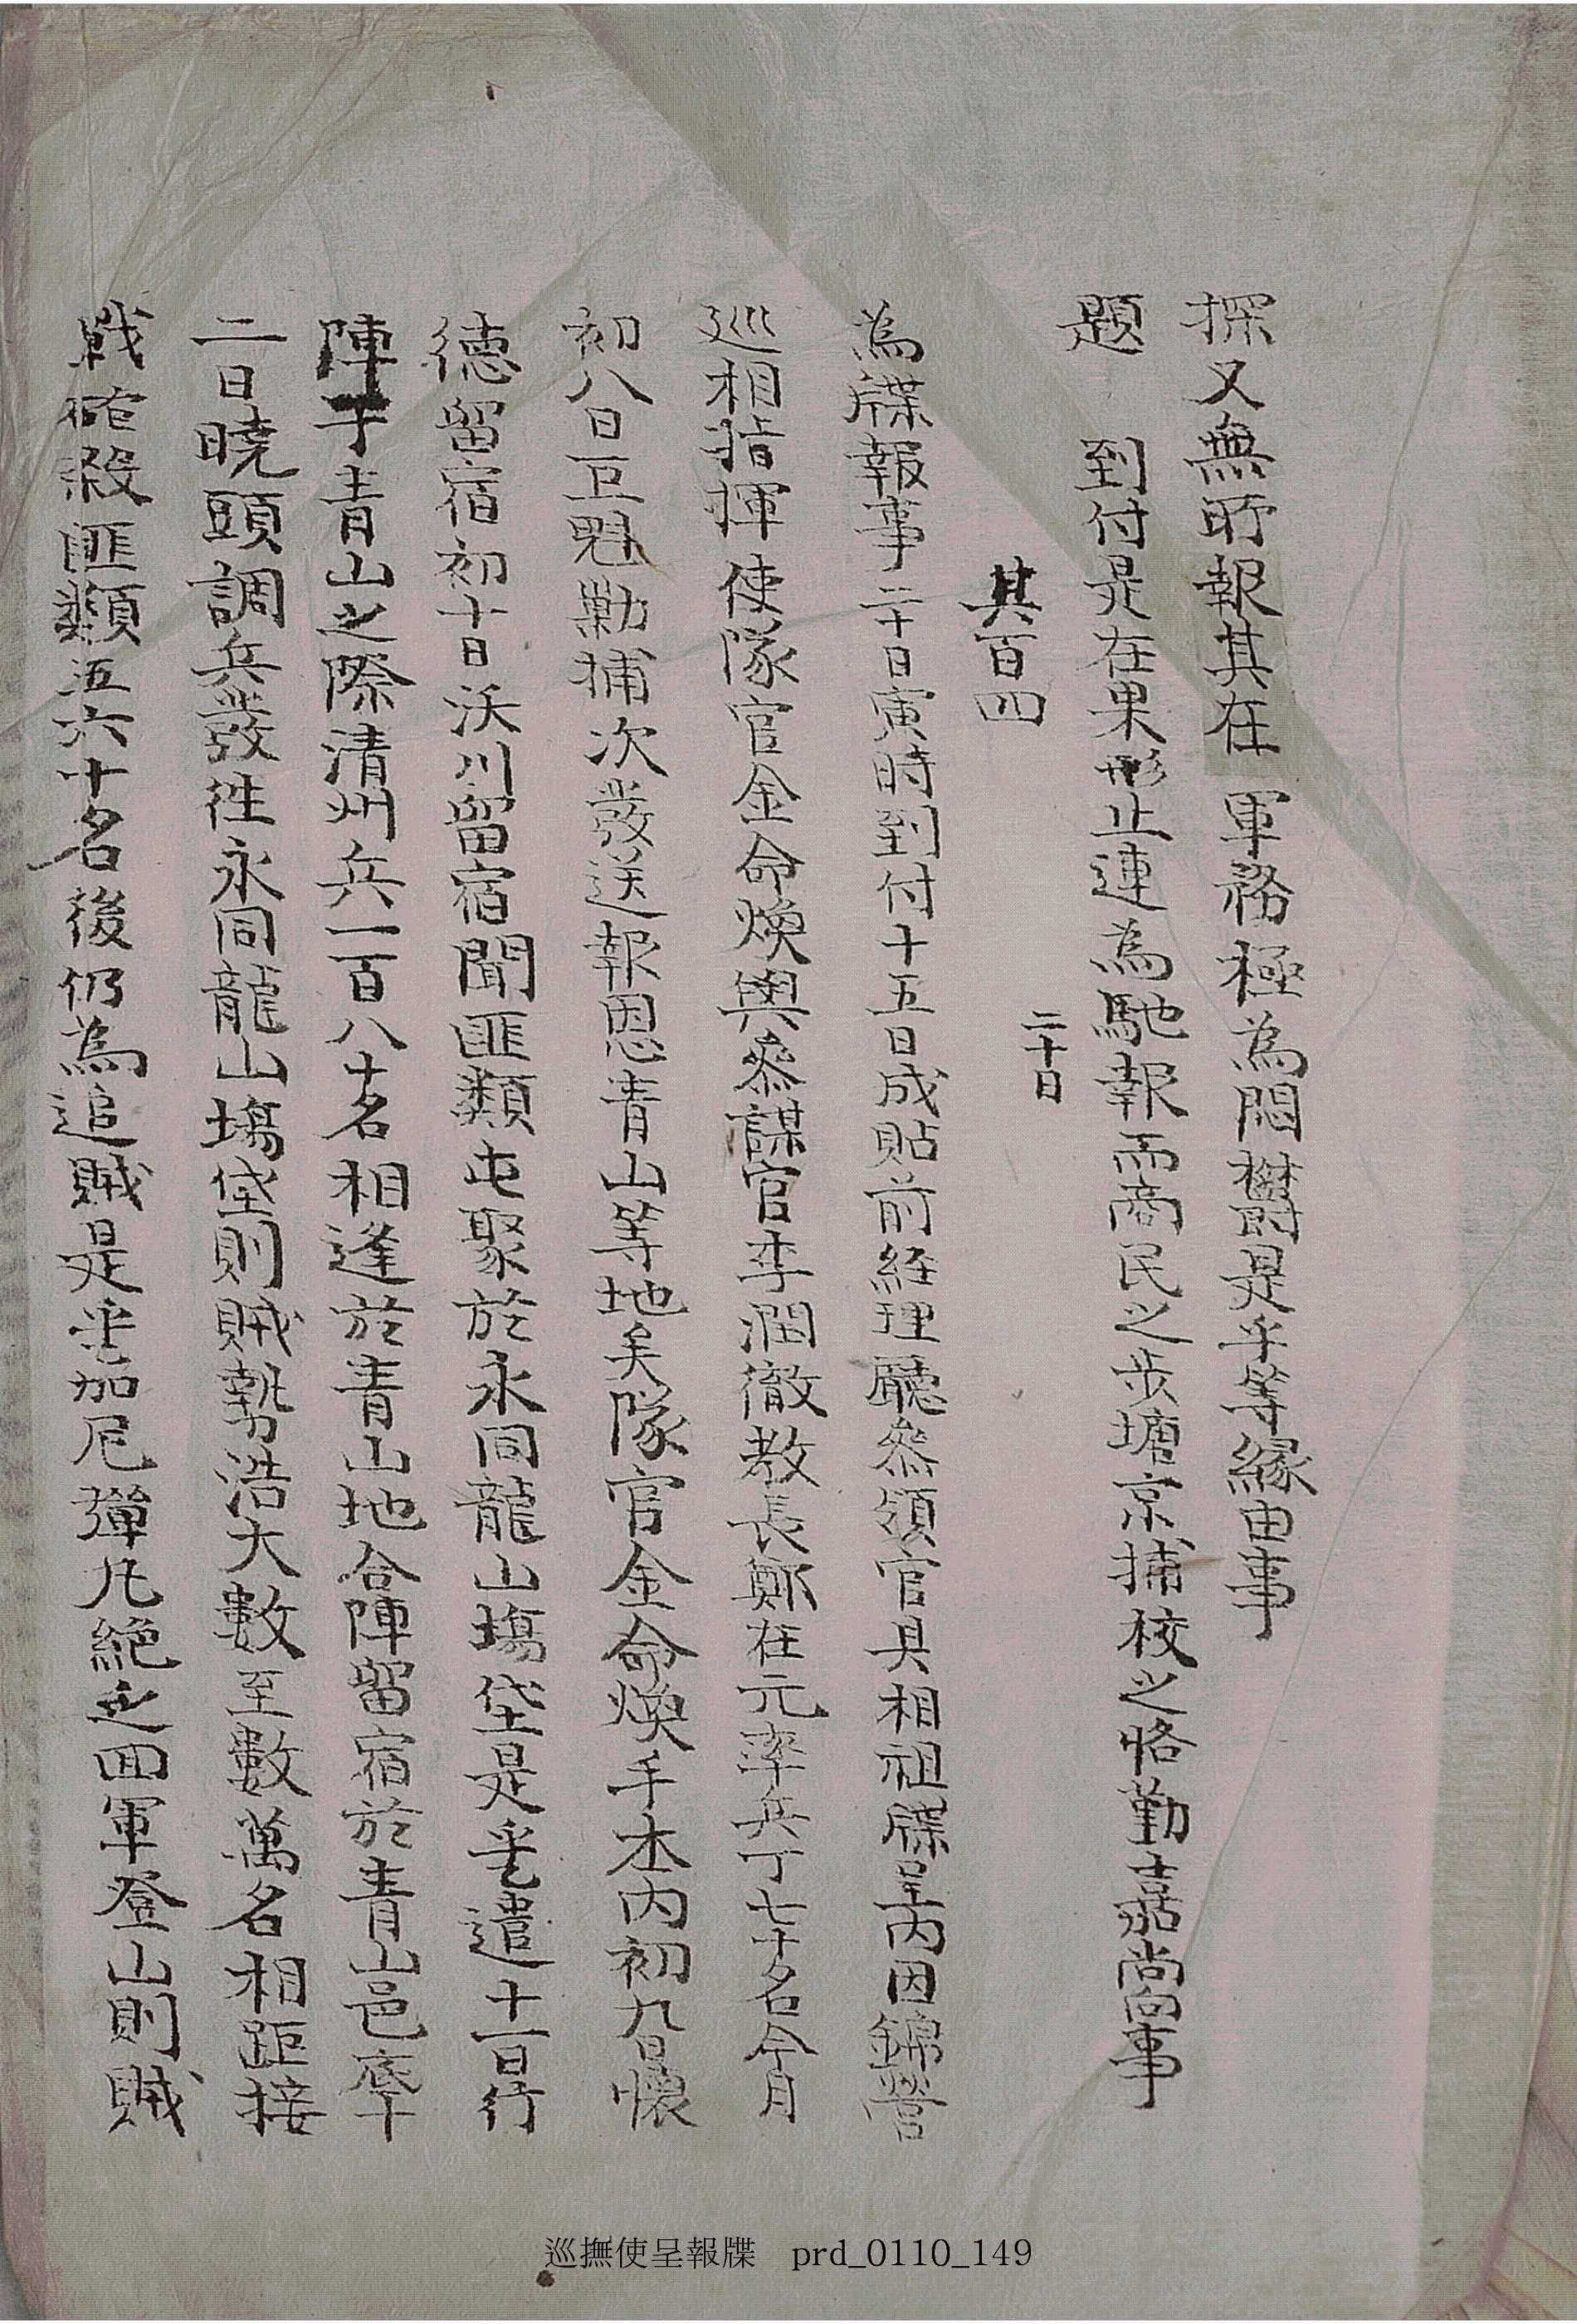 探又無所報其在 軍務極爲悶欝是乎等緣由事
題 到付是在果形止連爲馳報而商民之步塘京捕校之恪勤嘉尙向事
其百四 二十日
爲牒報事二十日寅時到付十五日成貼前經理廳參領官具相祖牒呈內因錦營
巡相指揮使隊官金命煥與參謀官李潤徹敎長鄭在元率兵丁七十名今月
初八日巨魁勦捕次發送報恩靑山等地矣隊官金命煥手本內初九日懷
德留宿初十日沃川留宿聞匪類屯聚於永同龍山塲垈是乎乙遣十一日行
陣于靑山之際淸州兵一百八十名相逢於靑山地合陣留宿於靑山邑底十
二日曉頭調兵發徃永同龍山塲垈則賊勢浩大數至數萬名相距接
戰砲殺匪類五六十名後仍爲追賊是乎乙加尼彈凡絶乏回軍登山則賊
巡撫使呈報牒 prd_0110_149